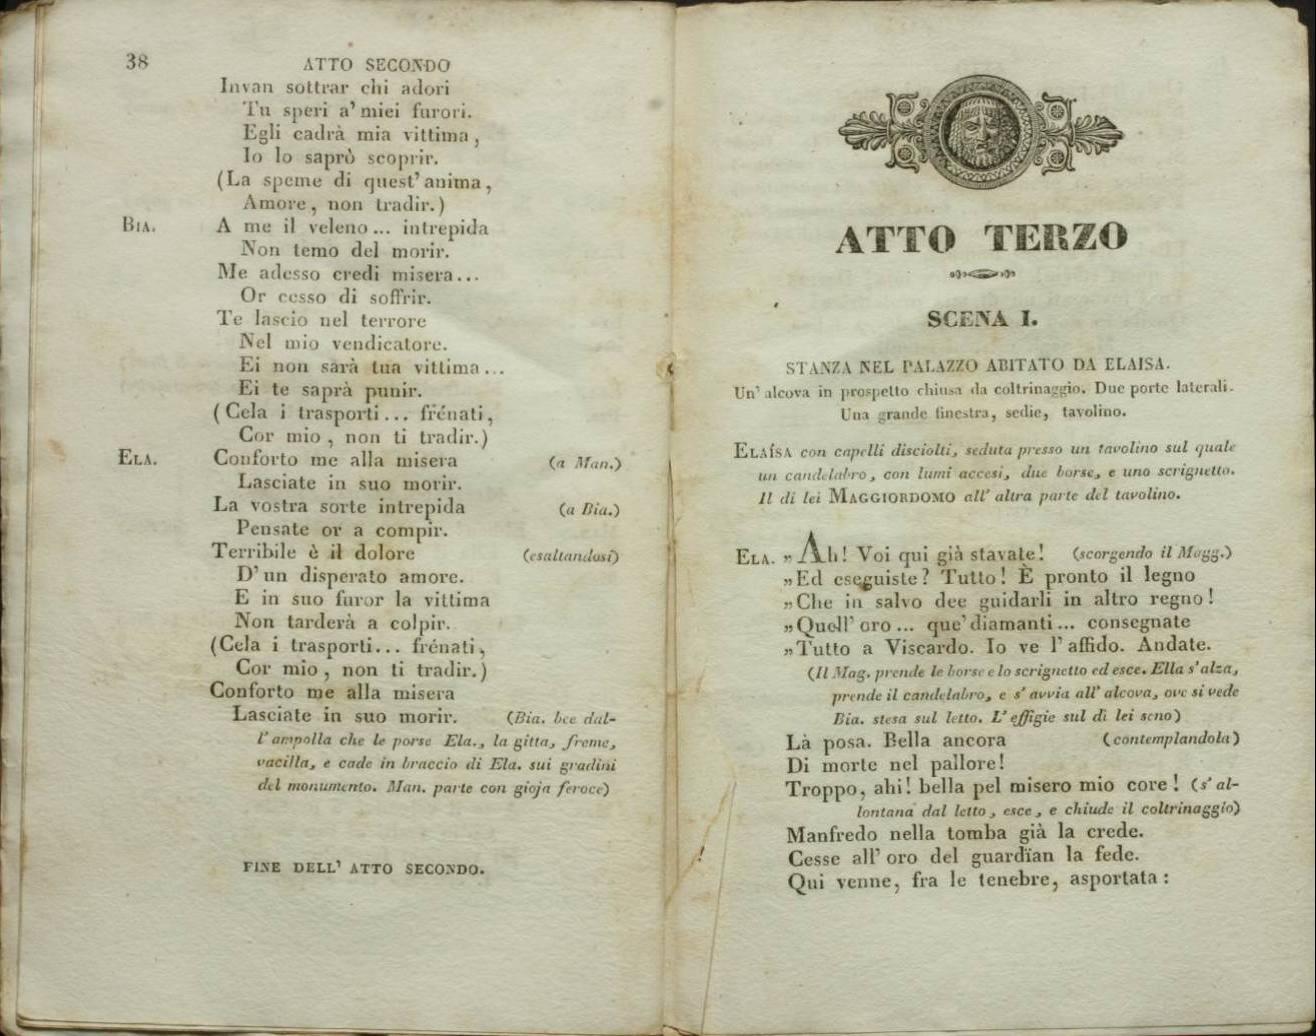 38
ATTO SECONDO
Invan sottrar chi adori
Tu speri a' miei furori.
Egli cadrà mia vittima,
Io lo saprò scoprir.
(La speme di quest' anima,
Amore, non tradir.)
BIA. A me il veleno... intrepida
Non temo del morir.
Me adesso credi misera...
Or cesso di soffrir.
Te lascio nel terrore
Nel mio vendicatore.
Ei non sarà tua vittima...
Ei te saprà punir.
(Cela i trasporti... frénati,
Cor mio, non ti tradir.)
ELA. Conforto me alla misera (a Man.)
Lasciate in suo morir.
La vostra sorte intrepida (a Bia.)
Pensate or a compir.
Terribile è il dolore (esaltandosi)
D' un disperato amore.
E in suo furor la vittima
Non tarderà a colpir.
(Cela i trasporti... frénati,
Cor mio, non ti tradir.)
Conforto me alla misera
Lasciate in suo morir. (Bia. bee dal-
l' ampolla che le porse Ela., la gitta, freme,
vacilla, e cade in braccio di Ela. sui gradini
del monumento. Man. parte con gioja feroce)
FINE DELL' ATTO SECONDO.
ATTO TERZO
SCENA I.
STANZA NEL PALAZZO ABITATO DA ELAISA.
Un' alcova in prospetto chiusa da coltrinaggio. Due porte laterali.
Una grande finestra, sedie, tavolino.
ELAÍSA con capelli disciolti, seduta presso un tavolino sul quale
un candelabro, con lumi accesi, due borse, e uno scrignetto.
Il di lei MAGGIORDOMO all' altra parte del tavolino.
ELA. „ Ah! Voi qui già stavate! (scorgendo il Magg.)
„Ed eseguiste? Tutto! È pronto il legno
„Che in salvo dee guidarli in altro regno!
„Quell' oro... que' diamanti... consegnate
„Tutto a Viscardo. Io ve l' affido. Andate.
(Il Mag. prende le borse e lo scrignetto ed esce. Ella s' alza,
prende il candelabro, e s' avvia all' alcova, ove si vede
Bia. stesa sul letto. L' effigie sul di lei seno)
Là posa. Bella ancora (contemplandola)
Di morte nel pallore!
Troppo, ahi! bella pel misero mio core! (s' al-
lontana dal letto, esce, e chiude il coltrinaggio)
Manfredo nella tomba già la crede.
Cesse all' oro del guardïan la fede.
Qui venne, fra le tenebre, asportata: